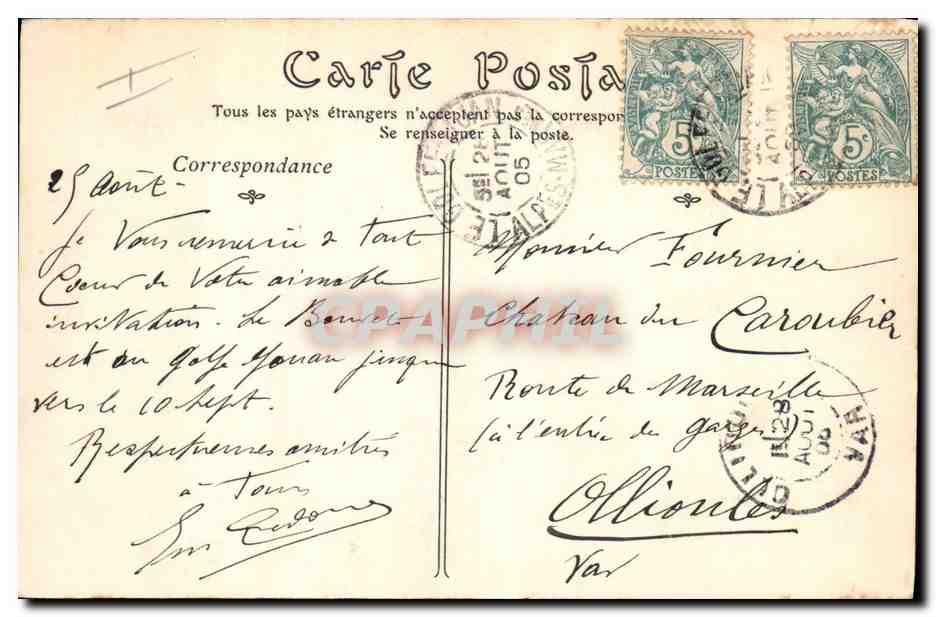 Carte Postale
Tous les pays étrangers n'acceptent pas la correspon
Se renseigner à la poste.
Correspondance
25 Août -
Je Vous remercie de tout
Coeur de Votre aimable
invitation. Le
est au Golfe Jouan jusque
vers le 10 Sept.
Respectueuses amitiés
à Tous
Monsieur Fournier
Chateau du Caroubier
Route de Marseille
(à l'entrée des gorges)
Ollioules
Var
5c
POSTES
5c
POSTES
GOLFE JUAN
ALPES-MMES
26
AOUT
05
OLLIOULES
VAR
28
AOUT
05
CPAPHIL